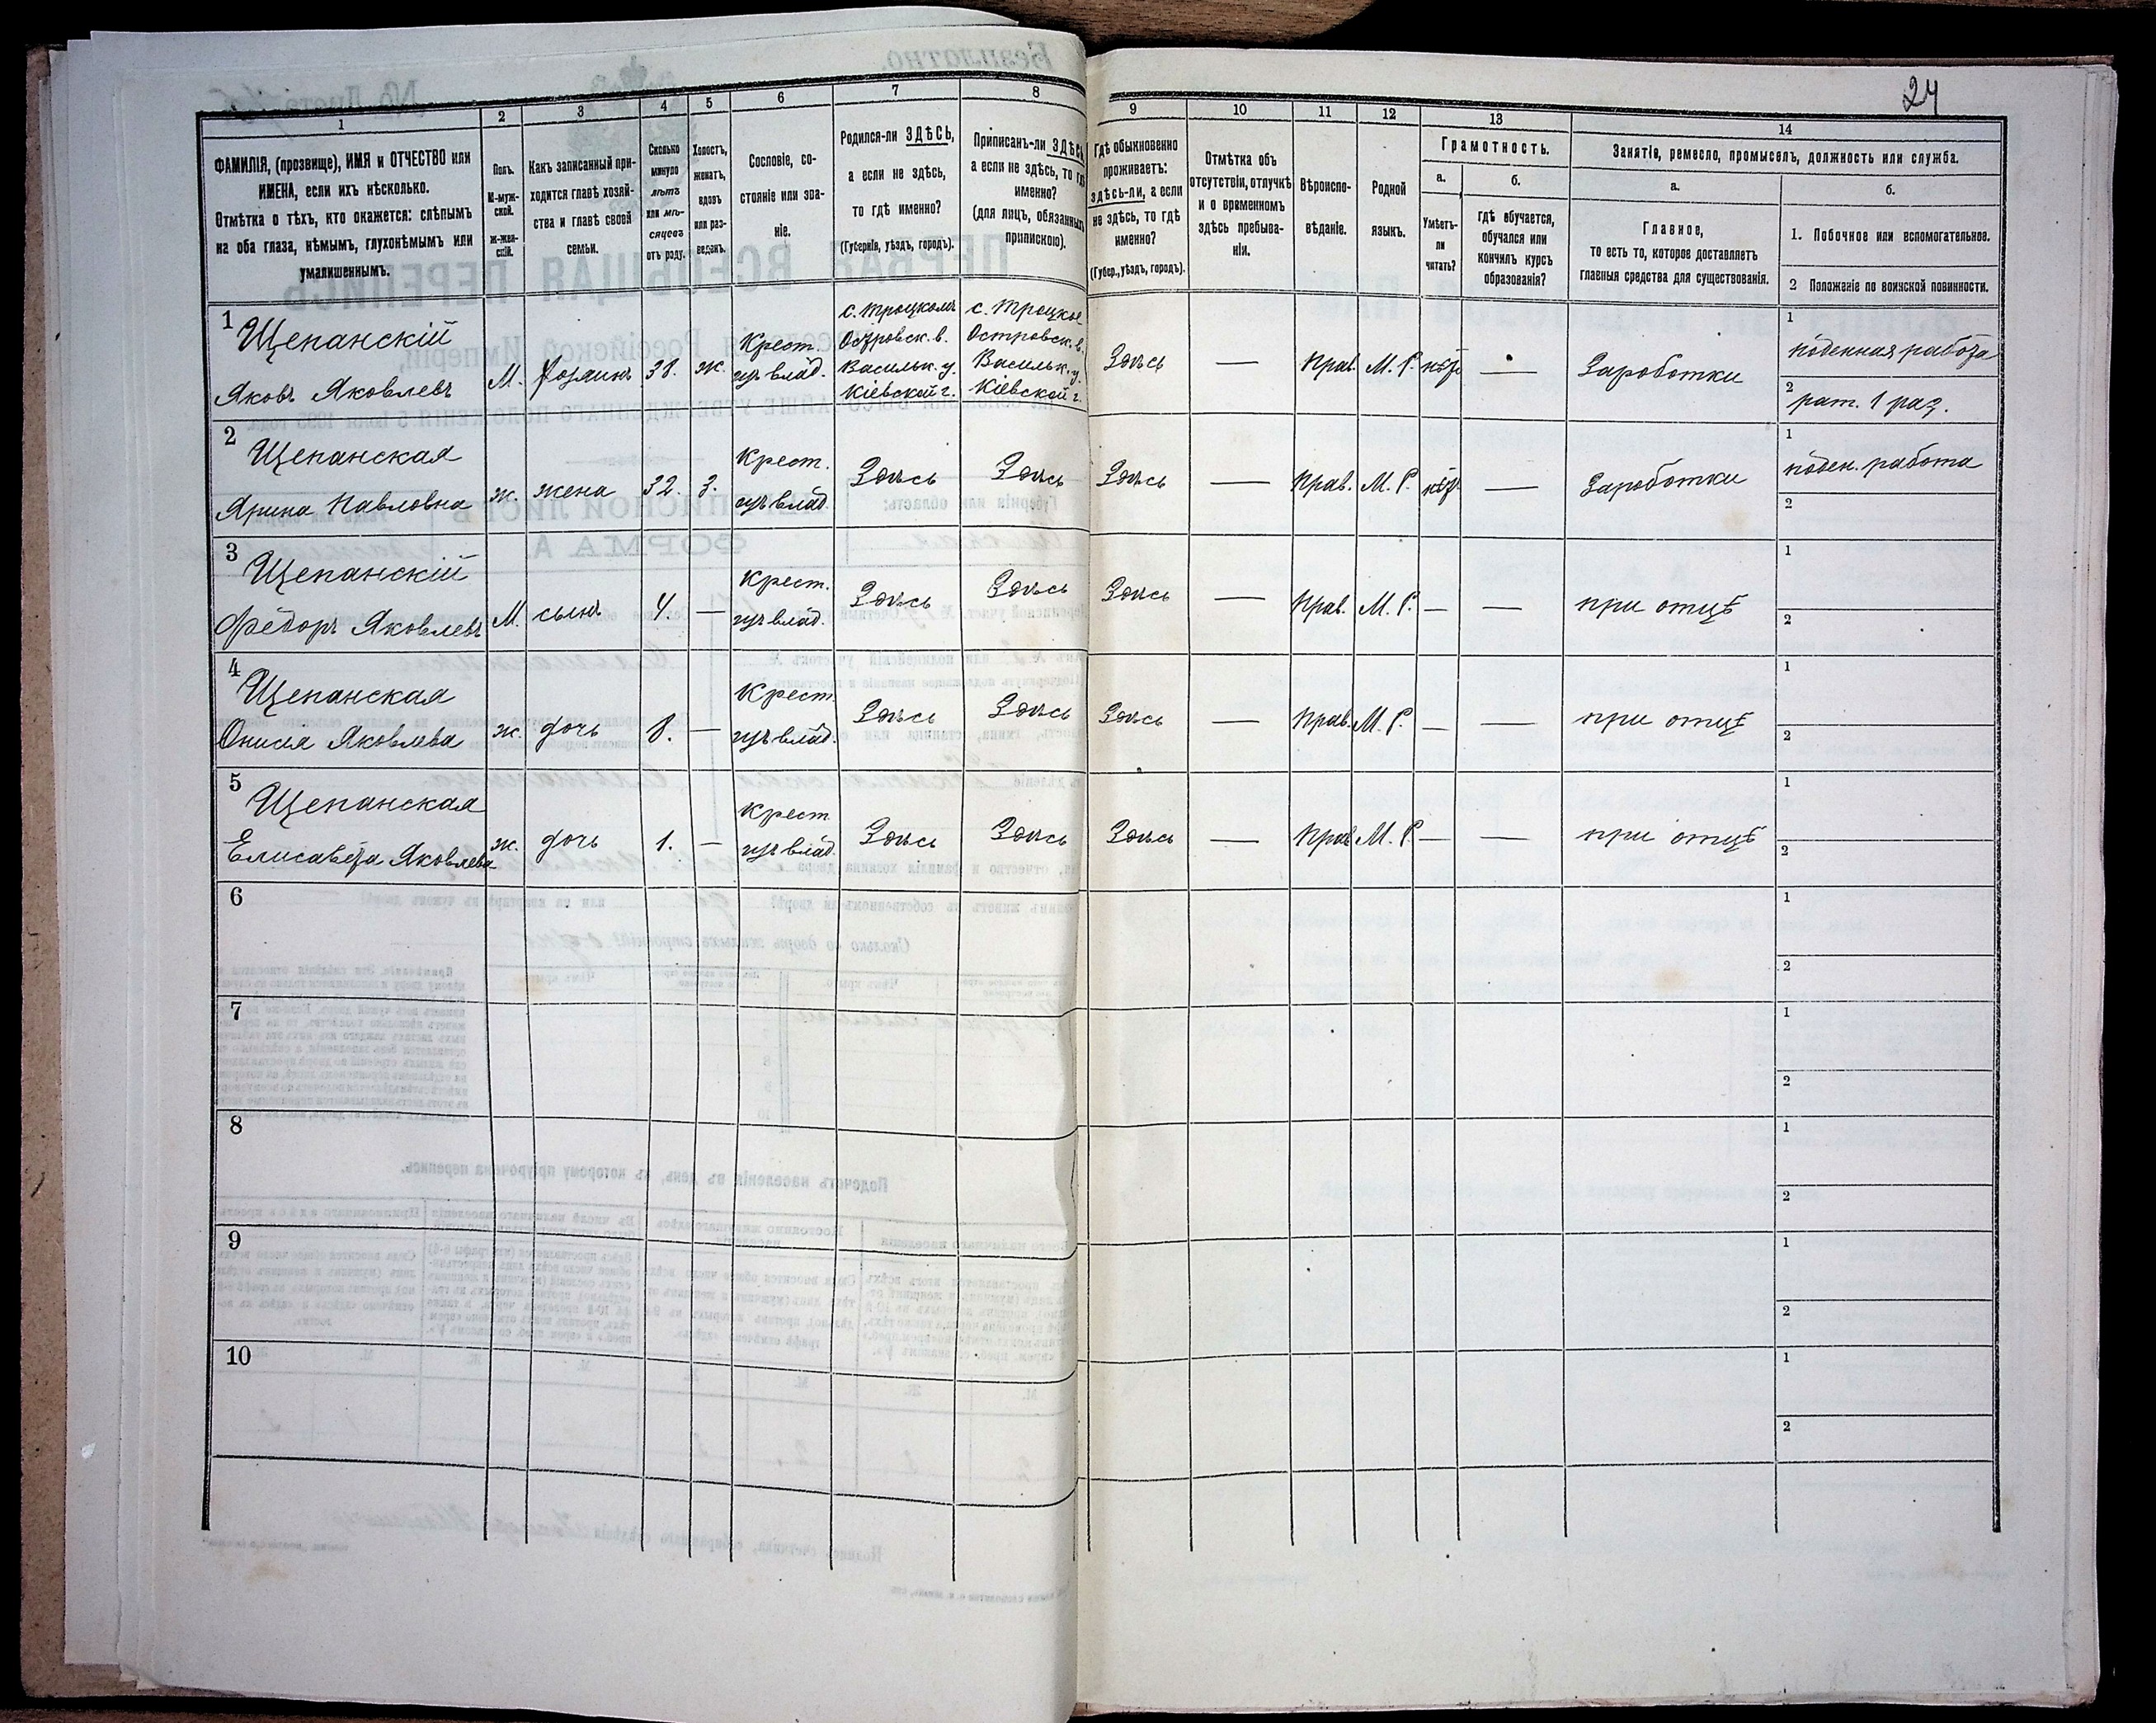 24
1
2
3
4
5
6
7
8
9
10
11
12
13
14
ФАМИЛІЯ, (прозвище), ИМЯ и ОТЧЕСТВО или
ИМЕНА, если ихъ нѣсколько.
Отмѣтка о тѣхъ, кто окажется: слѣпымъ
на оба глаза, нѣмымъ, глухонѣмымъ или
умалишеннымъ.
Полъ.
М-муж-
ской.
Ж-жен-
скій.
Какъ записанный при-
ходится главѣ хозяй-
ства и главѣ своей
семьи.
Сколько
минуло
лѣтъ
или мѣ-
сяцевъ
отъ роду.
Холостъ,
женатъ,
вдовъ
или раз-
веденъ.
Сословіе, со-
стояніе или зва-
ніе.
Родился-ли ЗДѢСЬ,
а если не здѣсь,
то гдѣ именно?
(Губернія, уѣздъ, городъ).
Приписанъ-ли ЗДѢСЬ
а если не здѣсь, то гдѣ
именно?
(для лицъ, обязанныхъ
припискою).
Гдѣ обыкновенно
проживаетъ:
здѣсь-ли, а если
не здѣсь, то гдѣ
именно?
(Губер., уѣздъ, городъ).
Отмѣтка объ
отсутствіи, отлучкѣ
и о временномъ
здѣсь пребыва-
ніи.
Вѣроиспо-
вѣданіе.
Родной
языкъ.
Грамотность.
а.
б.
Умѣетъ-
ли
читать?
гдѣ обучается,
обучался или
кончилъ курсъ
образованія?
Занятіе, ремесло, промыселъ, должность или служба.
а.
б.
Главное,
то есть то, которое доставляетъ
главныя средства для существованія.
1. Побочное или вспомогательное.
2 Положеніе по воинской повинности.
1
Щепанскій
Яковъ Яковлевъ
М.
хозяинъ
38.
ж.
Крест.
изъ влад.
с. Троцкомъ
Островск. в.
Васильк. у.
Кіевской г.
с. Троцкое
Островск. в.
Васильк. у.
Кіевской г.
Здѣсь
—
Прав.
М. Р.
нѣт
—
Зароботки
1
поденная работа
2
рат. 1 раз.
2
Щепанская
Ярина Павловна
ж.
жена
32.
З.
Крест.
изъ влад.
Здѣсь
Здѣсь
Здѣсь
—
Прав.
М. Р.
нѣт.
—
Зароботки
1
поден. работа
2
3
Щепанскій
Федоръ Яковлевъ
М.
сынъ
4.
—
Крест.
изъ влад.
Здѣсь
Здѣсь
Здѣсь
—
Прав.
М. Р.
—
—
при отцѣ
1
2
4
Щепанская
Онисія Яковлева
ж.
дочь
8.
—
Крест.
изъ влад.
Здѣсь
Здѣсь
Здѣсь
—
Прав.
М. Р.
—
—
при отцѣ
1
2
5
Щепанская
Елисавета Яковлева
ж.
дочь
1.
—
Крест
изъ влад.
Здѣсь
Здѣсь
Здѣсь
—
Прав
М. Р.
—
—
при отцѣ
1
2
6
1
2
7
1
2
8
1
2
9
1
2
10
1
2